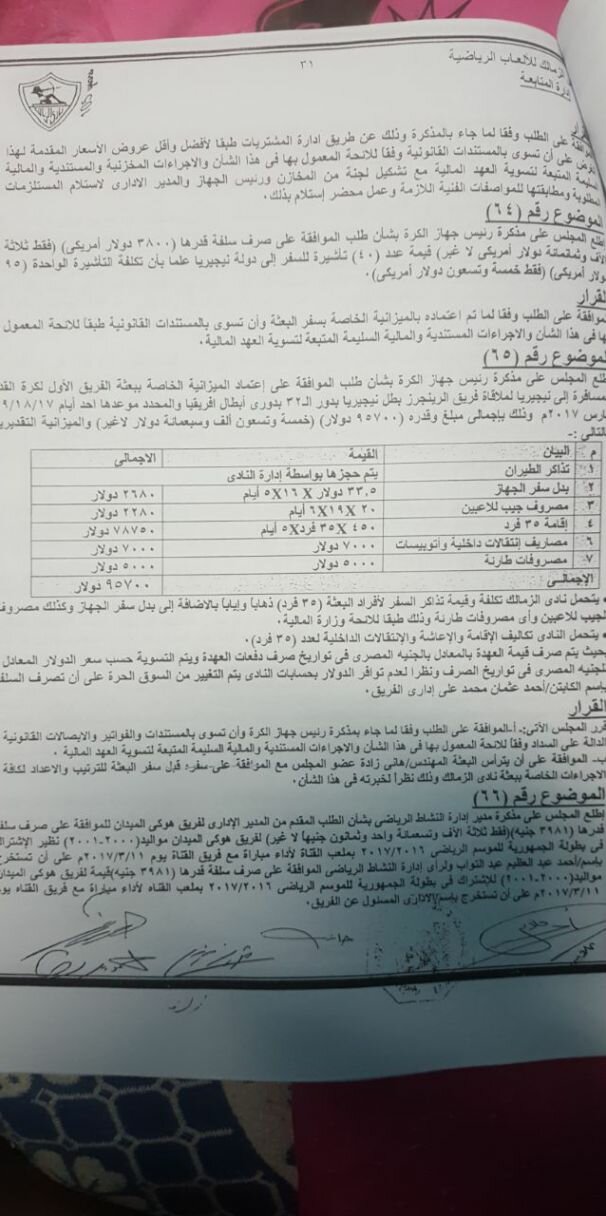 الزمالك للألعاب الرياضية
إدارة المتابعة
٣١
القرار
على الطلب وفقا لما جاء بالمذكرة وذلك عن طريق ادارة المشتريات طبقا لأفضل وأقل عروض الأسعار المقدمة لهذا
على أن تسوى بالمستندات القانونية وفقاً للائحة المعمول بها فى هذا الشأن والاجراءات المخزنية والمستندية والمالية
السليمة المتبعة لتسوية العهد المالية مع تشكيل لجنة من المخازن ورئيس الجهاز والمدير الادارى لاستلام المستلزمات
المطلوبة ومطابقتها للمواصفات الفنية اللازمة وعمل محضر إستلام بذلك.
الموضوع رقم (٦٤)
اطلع المجلس على مذكرة رئيس جهاز الكرة بشأن طلب الموافقة على صرف سلفة قدرها (٣٨٠٠ دولار أمريكى) (فقط ثلاثة
الاف وثمانمائة دولار أمريكى لا غير) قيمة عدد (٤٠) تأشيرة للسفر إلى دولة نيجيريا علما بأن تكلفة التأشيرة الواحدة (٩٥
دولار أمريكى) (فقط خمسة وتسعون دولار أمريكى).
القرار
الموافقة على الطلب وفقا لما تم اعتماده بالميزانية الخاصة بسفر البعثة وأن تسوى بالمستندات القانونية طبقاً للائحة المعمول
بها فى هذا الشأن والاجراءات المستندية والمالية السليمة المتبعة لتسوية العهد المالية.
الموضوع رقم (٦٥)
اطلع المجلس على مذكرة رئيس جهاز الكرة بشأن طلب الموافقة على إعتماد الميزانية الخاصة ببعثة الفريق الأول لكرة القدم
المسافرة إلى نيجيريا لملاقاة فريق الرينجرز بطل نيجيريا بدور الـ٣٢ بدورى أبطال إفريقيا والمحدد موعدها احد أيام ٩/١٨/١٧
مارس ٢٠١٧م وذلك بإجمالى مبلغ وقدره (٩٥٧٠٠ دولار) (خمسة وتسعون ألف وسبعمائة دولار لاغير) والميزانية التقديرية
كالتالى :-
م البيان القيمة الاجمالى
١ تذاكر الطيران يتم حجزها بواسطة إدارة النادى
٢ بدل سفر الجهاز ٣٣,٥ دولار X ١٦X٥ أيام ٢٦٨٠ دولار
٣ مصروف جيب للاعبين ٢٠ X ١٩X٦ أيام ٢٢٨٠ دولار
٤ إقامة ٣٥ فرد ٤٥٠ X ٣٥ فردX٥ أيام ٧٨٧٥٠ دولار
٦ مصاريف إنتقالات داخلية وأتوبيسات ٧٠٠٠ دولار ٧٠٠٠ دولار
٧ مصروفات طارئة ٥٠٠٠ دولار ٥٠٠٠ دولار
الإجمالـى ٩٥٧٠٠ دولار
• يتحمل نادى الزمالك تكلفة وقيمة تذاكر السفر لأفراد البعثة (٣٥ فرد) ذهاباً وإياباً بالاضافة إلى بدل سفر الجهاز وكذلك مصروف
الجيب للاعبين وأى مصروفات طارئة وذلك طبقا للائحة وزارة المالية.
• يتحمل النادى تكاليف الإقامة والإعاشة والإنتقالات الداخلية لعدد (٣٥ فرد).
بحيث يتم صرف قيمة العهدة بالمعادل بالجنيه المصرى فى تواريخ صرف دفعات العهدة ويتم التسوية حسب سعر الدولار المعادل
للجنيه المصرى فى تواريخ الصرف ونظرا لعدم توافر الدولار بحسابات النادى يتم التغيير من السوق الحرة على أن تصرف السلفة
باسم الكابتن/أحمد عثمان محمد على إدارى الفريق.
القرار
قرر المجلس الآتى:- أ-الموافقة على الطلب وفقا لما جاء بمذكرة رئيس جهاز الكرة وأن تسوى بالمستندات والفواتير والايصالات القانونية
الدالة على السداد وفقاً للائحة المعمول بها فى هذا الشأن والاجراءات المستندية والمالية السليمة المتبعة لتسوية العهد المالية .
ب- الموافقة على أن يترأس البعثة المهندس/هانى زادة عضو المجلس مع الموافقة على سفره قبل سفر البعثة للترتيب والاعداد لكافة
الاجراءات الخاصة ببعثة نادى الزمالك وذلك نظراً لخبرته فى هذا الشأن.
الموضوع رقم (٦٦)
إطلع المجلس على مذكرة مدير إدارة النشاط الرياضى بشأن الطلب المقدم من المدير الإدارى لفريق هوكى الميدان للموافقة على صرف سلفة
قدرها (٣٩٨١ جنيه)(فقط ثلاثة ألاف وتسعمائة واحد وثمانون جنيها لا غير) لفريق هوكى الميدان مواليد(٢٠٠٠-٢٠٠١) نظير الإشتراك
فى بطولة الجمهورية للموسم الرياضى ٢٠١٧/٢٠١٦ بملعب القناة لأداء مباراة مع فريق القناة يوم ٢٠١٧/٣/١١م على أن تستخرج
بإسم/أحمد عبد العظيم عبد التواب ولرأى إدارة النشاط الرياضى الموافقة على صرف سلفة قدرها (٣٩٨١ جنيه)قيمة لفريق هوكى الميدان
مواليد(٢٠٠٠-٢٠٠١) للاشتراك فى بطولة الجمهورية للموسم الرياضى ٢٠١٧/٢٠١٦ بملعب القناه لأداء مباراة مع فريق القناه يوم
٢٠١٧/٣/١١م على أن تستخرج بإسم/الادارى المسئول عن الفريق.